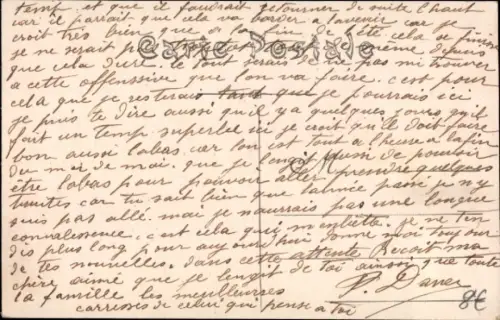 temp. et que il faudrait retourner de suite l'haut
car il parait que cela va barder a l'avenir car je
croit très bien que a la fin de l'été cela se finira
je ne serait pas
Carte Postale
que cela dure. je serais de ne pas mi trouver
a cette offenssive que l'on va faire. c'est pour
cela que je resterais tant que je pourrais ici
je puis te dire aussi qu'il y a quelques jours qu'il
fait un temp superbe ici je croit qu'il doit faire
bon aussi labas. car l'on est tout a l'heure a la fin
du moi de mai. que je langui aussi de pouvoir
être labas pour pouvoir aller prendre quelques
truites car tu sait bien que l'année passé je n'y
suis pas allé. mai je n'aurrais pas une longue
convalessence. c'est cela qui m'embette. je ne ten
dis plus long pour aujourd'hui donne moi toujour
de tes nouvelles. dans cette attente Recoit ma
chère aimé que je langit de toi ainsi que toute
la famille les meilleures
carresses de celui qui pense a toi
8€